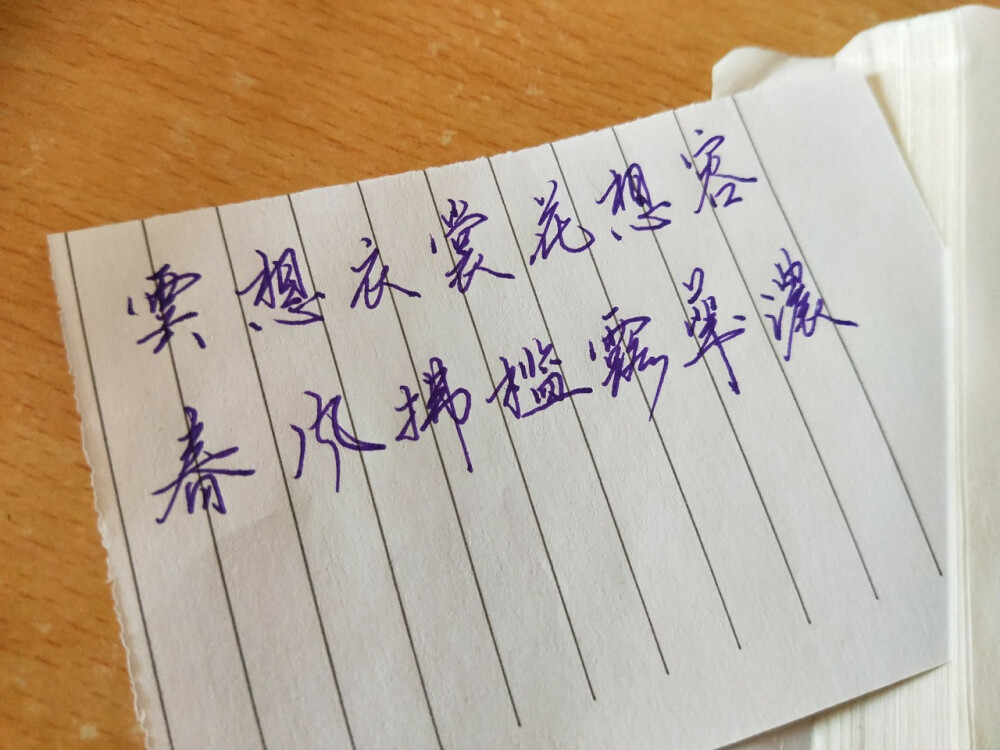 雲想衣裳花想容
春风拂檻露華濃